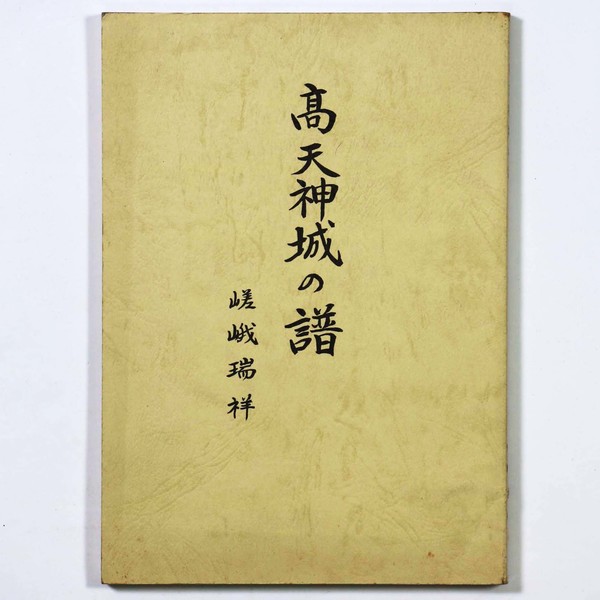 髙天神城の譜
嵯峨瑞祥